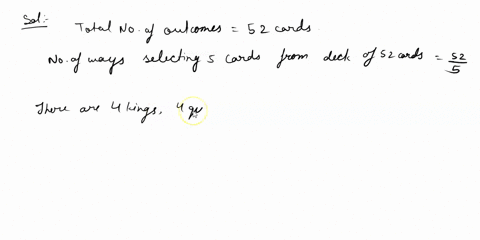 Sol:-
Total No. of outcomes = 52 cards.
No. of ways selecting 5 cards from deck of 52 cards = 52/5
There are 4 kings, 4 qu